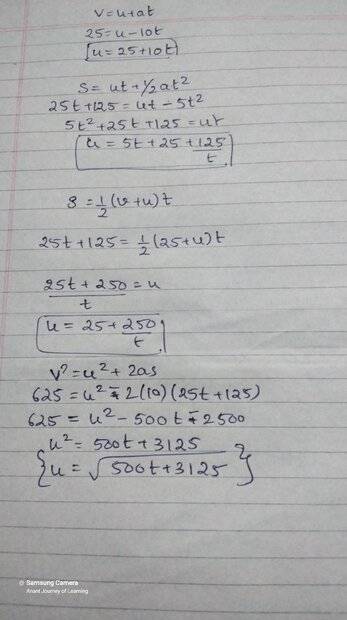 V=u+at
25=u-10t
u=25+10t
S= ut+½at²
25t+125=ut-5t²
5t²+25t+125=ut
u=5t+25+125/t
s=1/2(v+u)t
25t+125=1/2(25+u)t
25t+250/t=u
u=25+250/t
V²=u²+2as
625=u²-2(10)(25t+125)
625=u²-500t-2500
u²=500t+3125
{u=√500t+3125}
Samsung Camera
Anant Journey of Learning